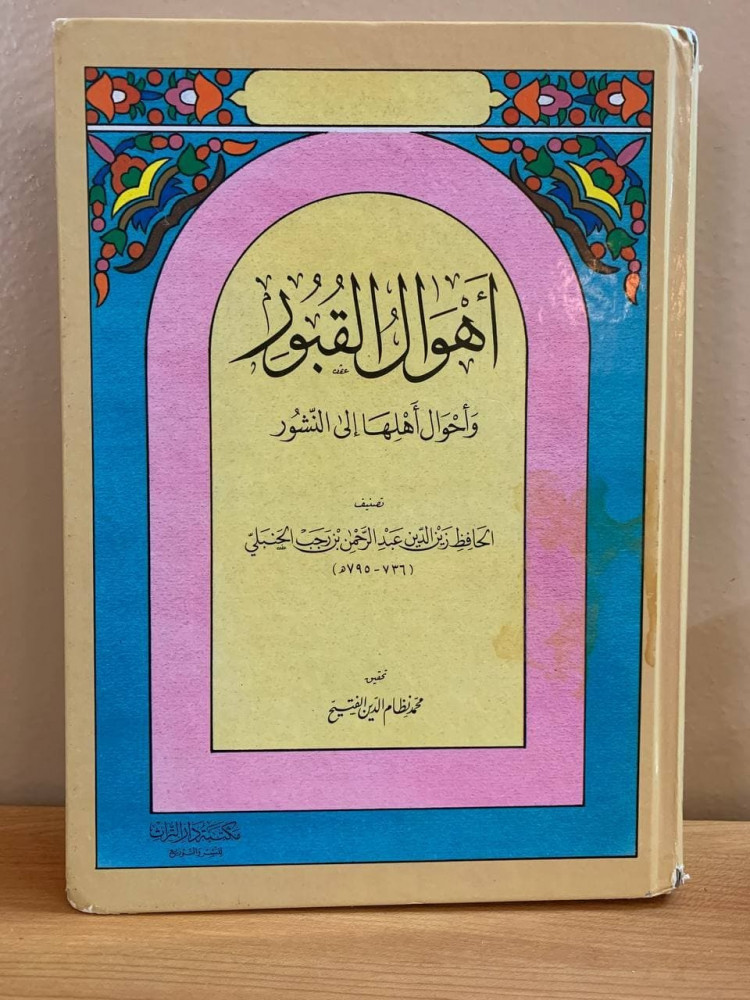 أَهْوَالُ القُبُورِ
وَأحْوَال أَهْلِهَا إلى النّشُور
تصنيف
الحَافِظ زَيْن الدّين عَبْد الرَّحْمٰن بْن رَجَب الحَنبَليّ
(٧٣٦ - ٧٩٥ هـ)
تحقيق
محمد نظام الدين الفتيح
مكتبة دار التراث
للنشر والتوزيع